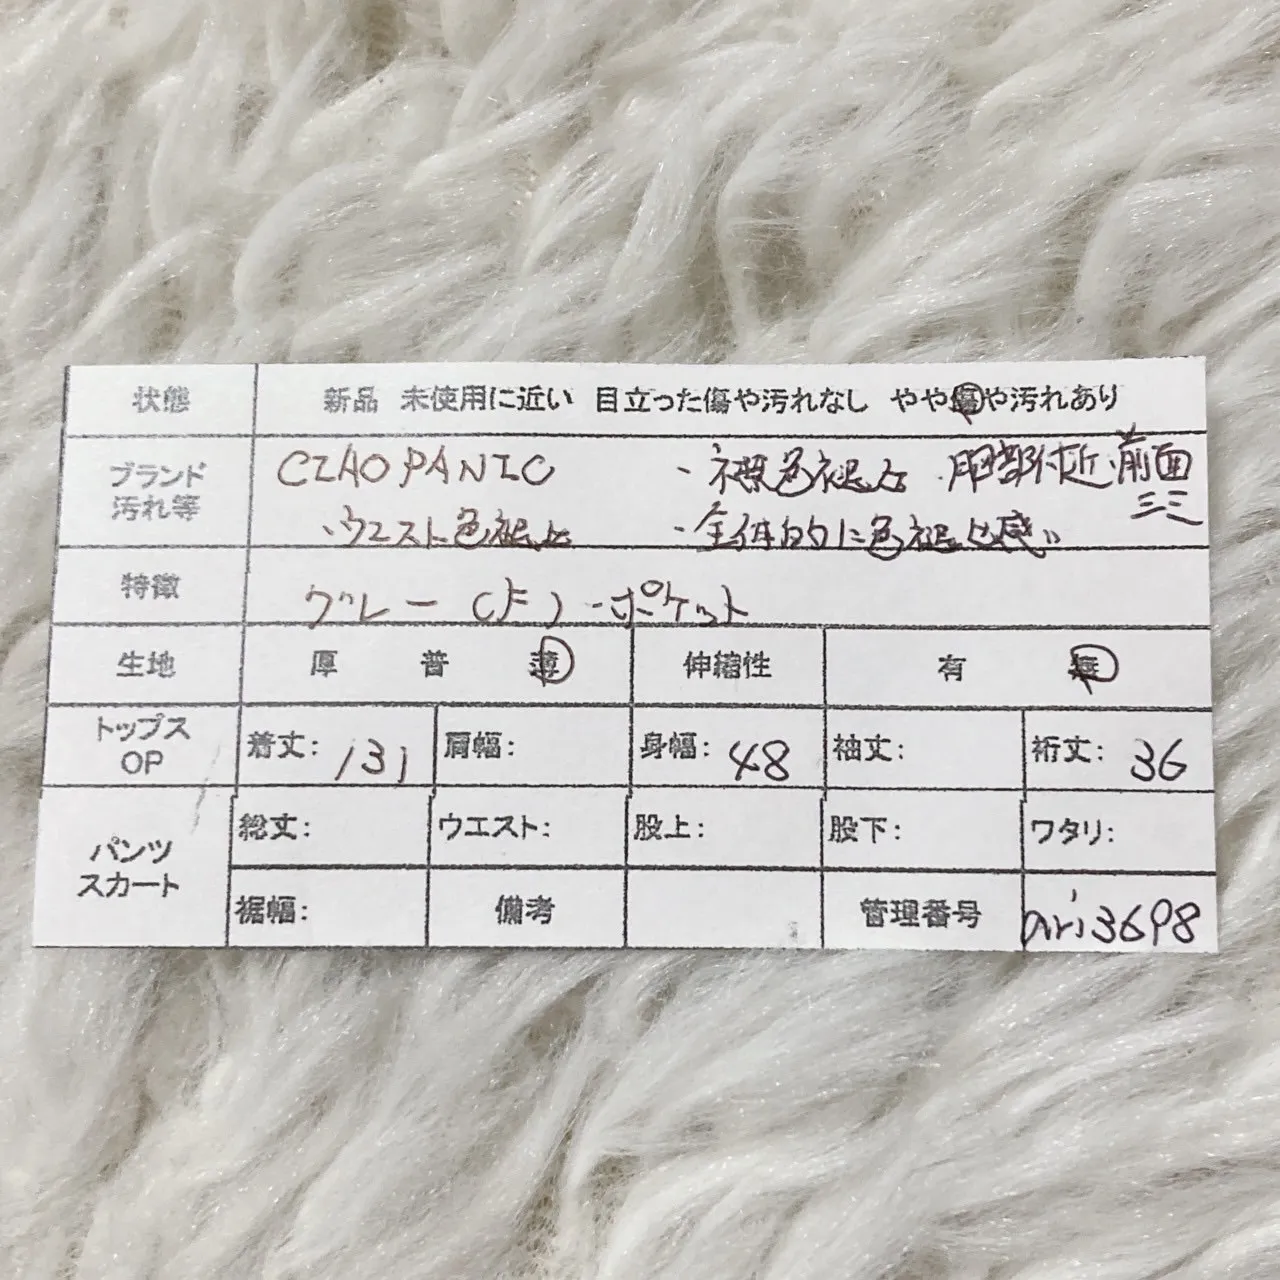 状態 新品 未使用に近い 目立った傷や汚れなし やや傷や汚れあり
ブランド 汚れ等
CIAOPANIC
・襟色褪せ 胴部付近・前面
・ウエスト色褪せ ・全体的に色褪せ感
特徴 グレー ポケット
生地 厚 普 薄 伸縮性 有 無
トップス OP 着丈: 131 肩幅: 身幅: 48 袖丈: 裄丈: 36
パンツ スカート 総丈: ウエスト: 股上: 股下: ワタリ:
裾幅: 備考 管理番号 ari3698